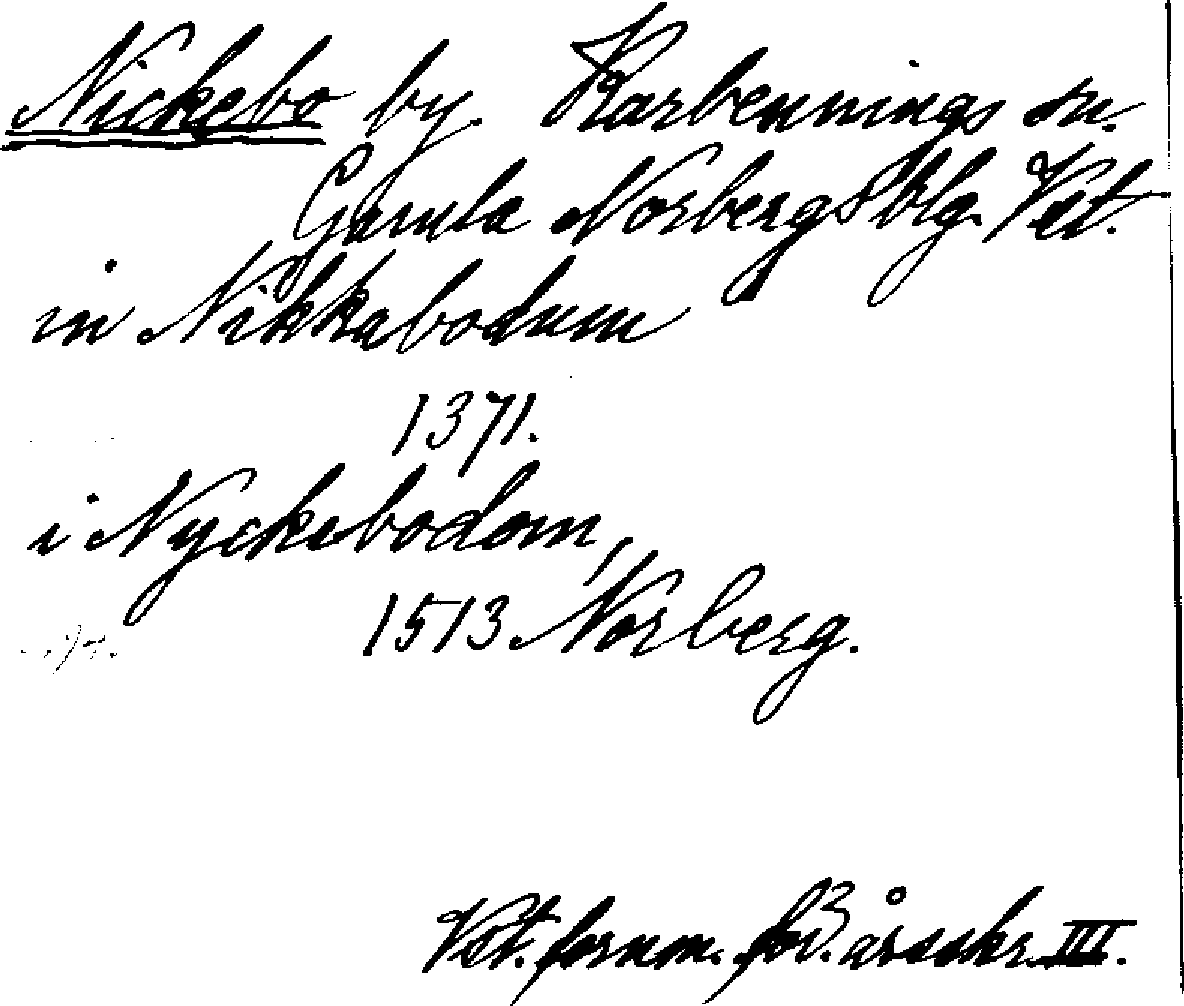 Nickebo by. Karbennings sn.
Gamla Norbergs blg. Vst.
in Nikkabodum
1371.
i Nyckebodom,
1513 Norberg.
Vst. fornm. för. årsskr. III.